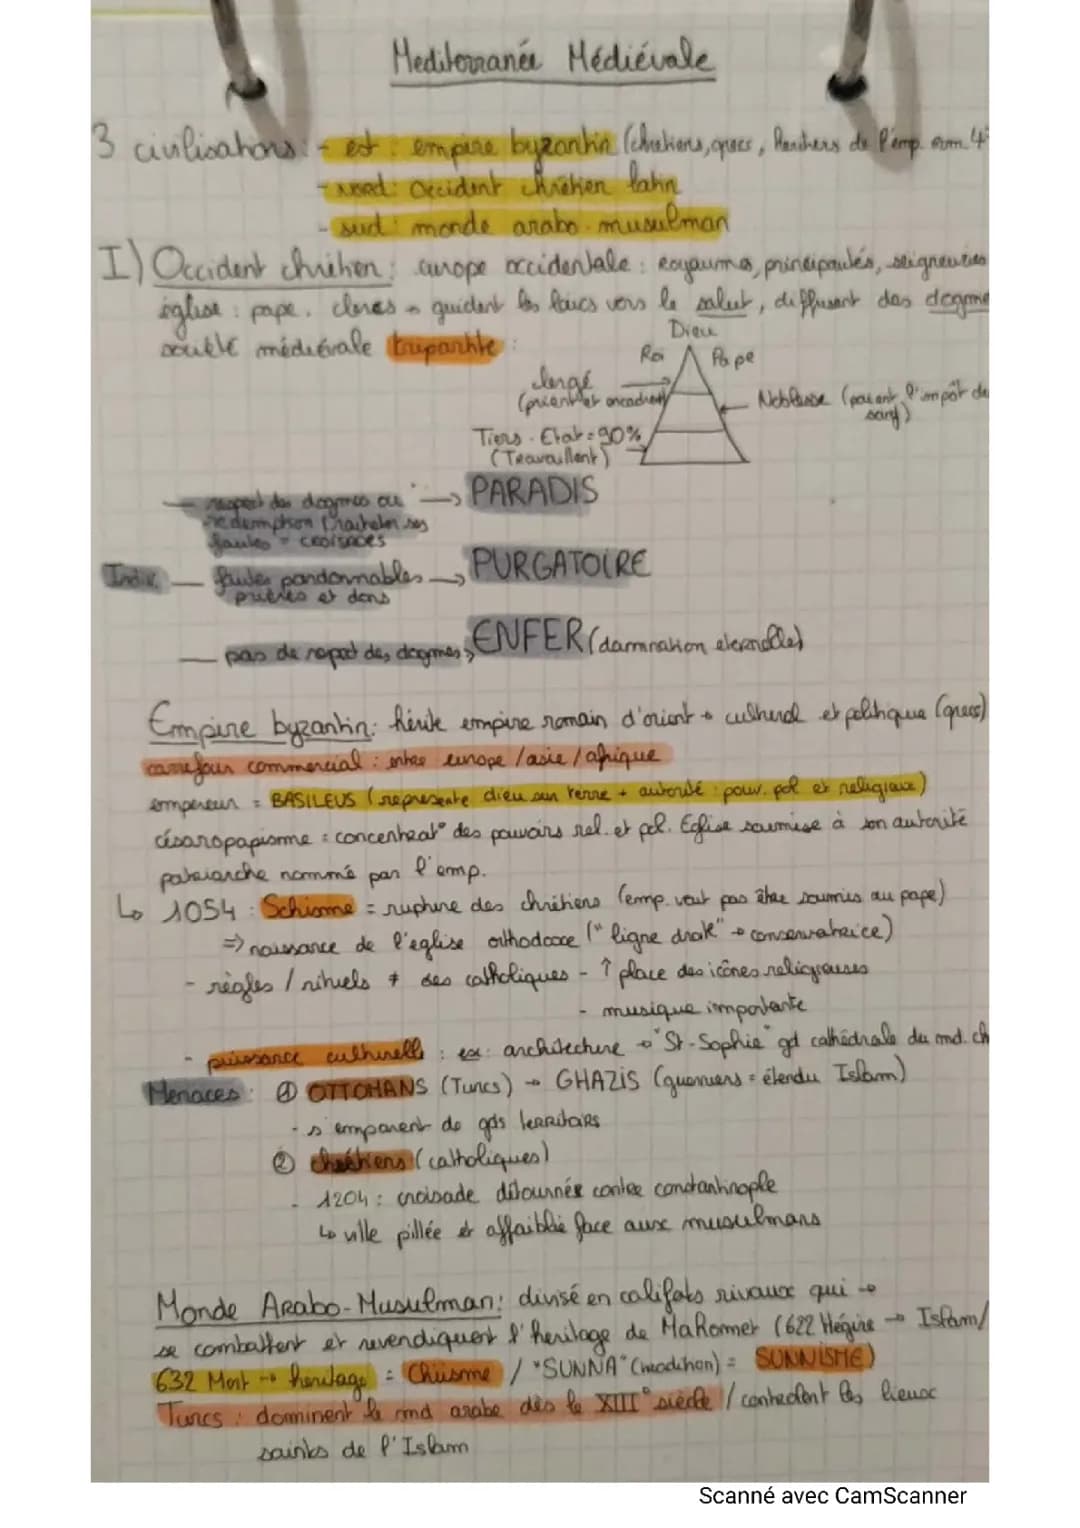 Mediterranée Médiévale
3 civilisations : - est : empire byzantin (chrétiens, grecs, héritiers de l'emp. rom. 4
- nord : Occident chrétien latin
- sud : monde arabo-musulman
I) Occident chrétien : europe occidentale : royaumes, principautés, seigneuries
église : pape, clercs → guident les laïcs vers le salut, diffusent des dogme
société médiévale tripartite :
Dieu
Roi Pape
clergé
(prient et encadrent)
Noblesse (paient l'impôt de
sang)
Tiers-Etat = 90%
(Travaillent)
— respect des dogmes ou → PARADIS
redemption (racheter ses
fautes = CROISADES
Indiv — fautes pardonnables → PURGATOIRE
prières et dons
— pas de respect des dogmes → ENFER (damnation eternelle)
Empire byzantin : hérite empire romain d'orient → culturel et politique (grecs)
carrefour commercial : entre europe / asie / afrique
empereur = BASILEUS (représente dieu sur terre + autorité : pouv. pol et religieux)
césaropapisme = concentrat° des pouvoirs rel. et pol. Eglise soumise à son autorité
patriarche nommé par l'emp.
↳ 1054 : Schisme = rupture des chrétiens (emp. veut pas être soumis au pape)
=> naissance de l'eglise orthodoxe ("ligne droite" → conservatrice)
- règles / rituels ≠ des catholiques - ↑ place des icônes religieuses
- musique importante
- puissance culturelle : ex : architecture → "St-Sophie" gd cathédrale du md. ch
Menaces : ① OTTOMANS (Turcs) → GHAZIS (guerriers = étendu Islam)
- s'emparent de gds territoirs
② chrétiens (catholiques)
- 1204 : croisade détournée contre constantinople
↳ ville pillée et affaiblie face aux musulmans
Monde Arabo-Musulman : divisé en califats rivaux qui →
se combattent et revendiquent l'heritage de Mahomet (622 Hégire → Islam/
632 Mort → heritage = Chiisme / "SUNNA" (tradition) = SUNNISME)
Turcs : dominent le md arabe dès le XIII° siècle / contrôlent les lieux
saints de l'Islam
Scanné avec CamScanner